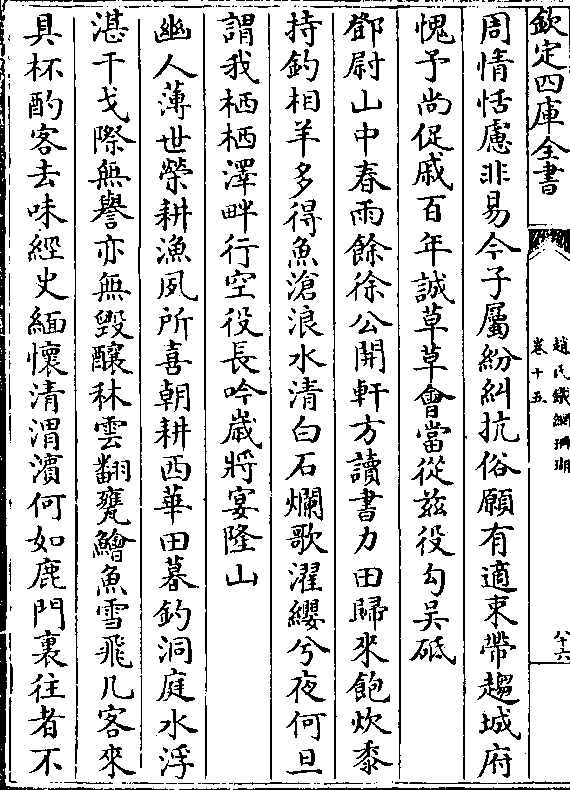 欽定四庫全書
趙氏鐵網珊瑚
卷十五
六
周情恬慮非易今子屬紛糾抗俗願有適束帶趨城府
愧予尚促戚百年誠草草會當從茲役勾吳砥
鄧尉山中春雨餘徐公開軒方讀書力田歸來飽炊黍
持釣相羊多得魚滄浪水清白石爛歌濯纓兮夜何旦
謂我栖栖澤畔行空役長吟歲將宴隆山
幽人薄世榮耕漁夙所喜朝耕西華田暮釣洞庭水浮
湛干戈際無譽亦無毀釀秫雲翻甕鱠魚雪飛几客來
具杯酌客去味經史緬懷清渭濱何如鹿門裏往者不